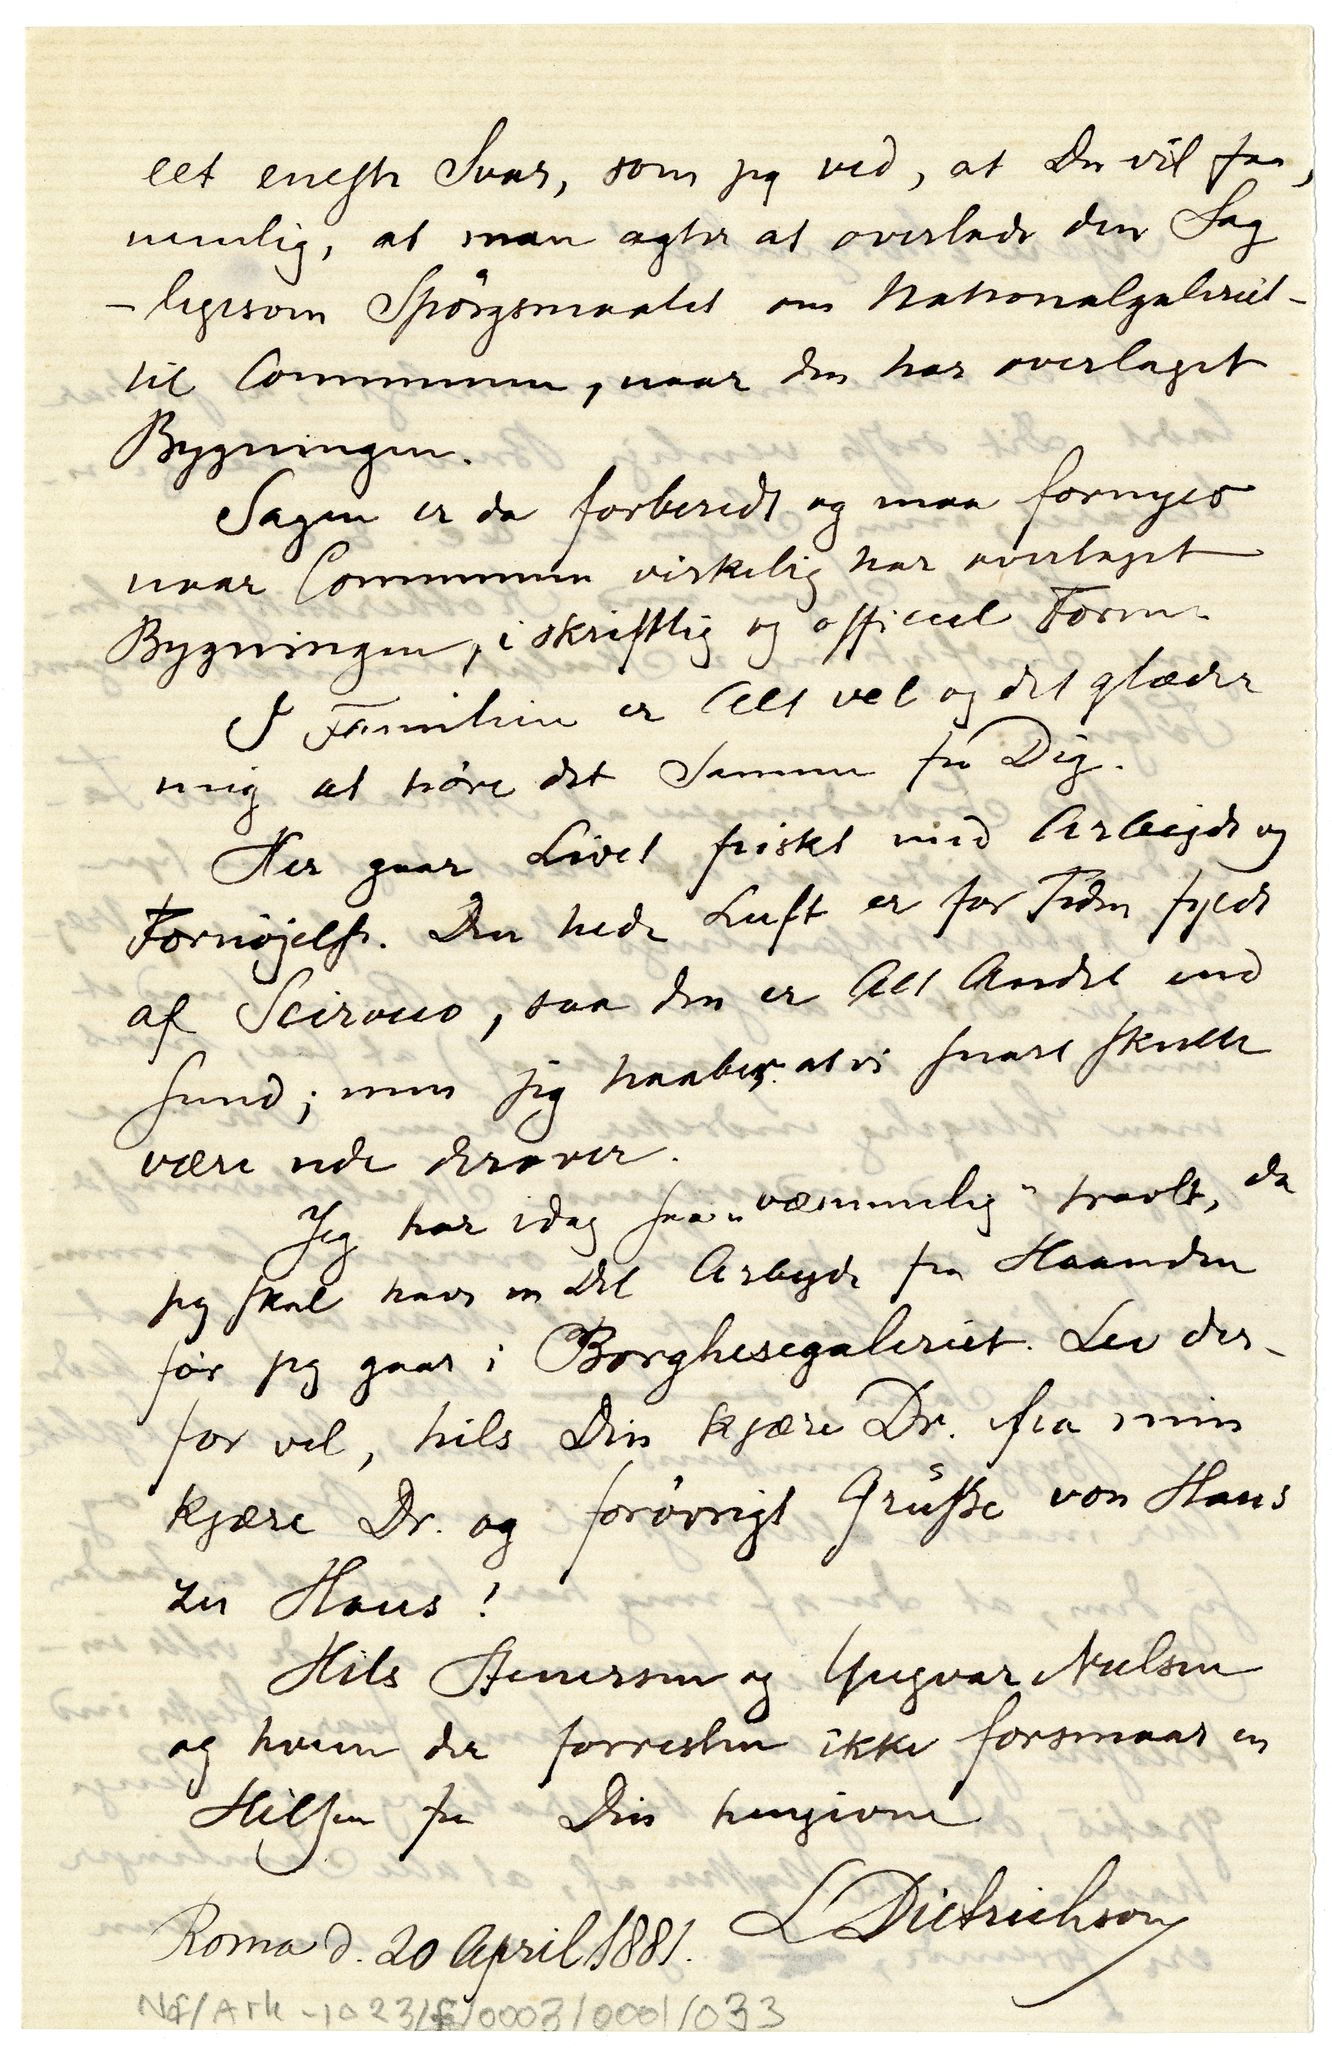 eet eneste Svar, som jeg ved, at Du vil faa,
nemlig, at man agter at overlade den Sag
– ligesom Spörgsmaalet om Nationalgaleriet –
til Communen, naar den har overtaget
Bygningen.
Sagen er da forberedt og maa fornyes
naar Communen virkelig har overtaget
Bygningen, i skriftlig og officiel Form.
I Familien er Alt vel og det glæder
mig at høre det Samme fra Dig.
Her gaar Livet friskt med Arbeide og
Fornøjelse. Den hede Luft er for Tiden fyldt
af Scirocco, saa den er Alt Andet end
sund; men jeg haaber at vi snart skulle
være ude derover.
Jeg har idag saa „væmmelig" travlt, da
jeg skal have en Del Arbejde fra Haanden
før jeg gaar i Borghesegaleriet. Lev der-
for vel, hils Din kjære Dr. fra min
kjære Dr. og forøvrigt Grüsse von Haus
zu Haus!
Hils Stenersen og Yngvar Nielsen
og hvem der forresten ikke forsmaar en
Hilsen fra Din hengivne
L Dietrichson
Roma d. 20 April 1881.
NF/Ark-1023/F/0003/0001/033